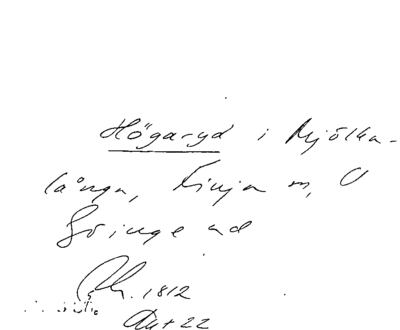 Högaryd i Mjölka-
långa, Finja m, O
Göinge hd
Ink. 1812
Akt 22